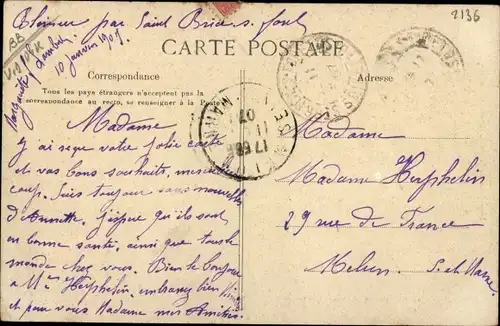 2136
par Saint Brice s.
10 janvier 1907
CARTE POSTALE
Correspondance
Adresse
Tous les pays étrangers n'acceptent pas la
correspondance au recto, se renseigner à la Poste
Madame
j'ai reçu votre jolie carte
et vos bons souhaits, merci
coup. Suis toujours sans nouvelles
d'Annette. J'espère qu'ils sont
en bonne santé, ainsi que tout le
monde chez vous. Bien le bonjour
à Herphelin, bien
et pour vous Madame mes Amitiés
Madame
Madame Herphelin
29 rue de France
Melun S. et Marne